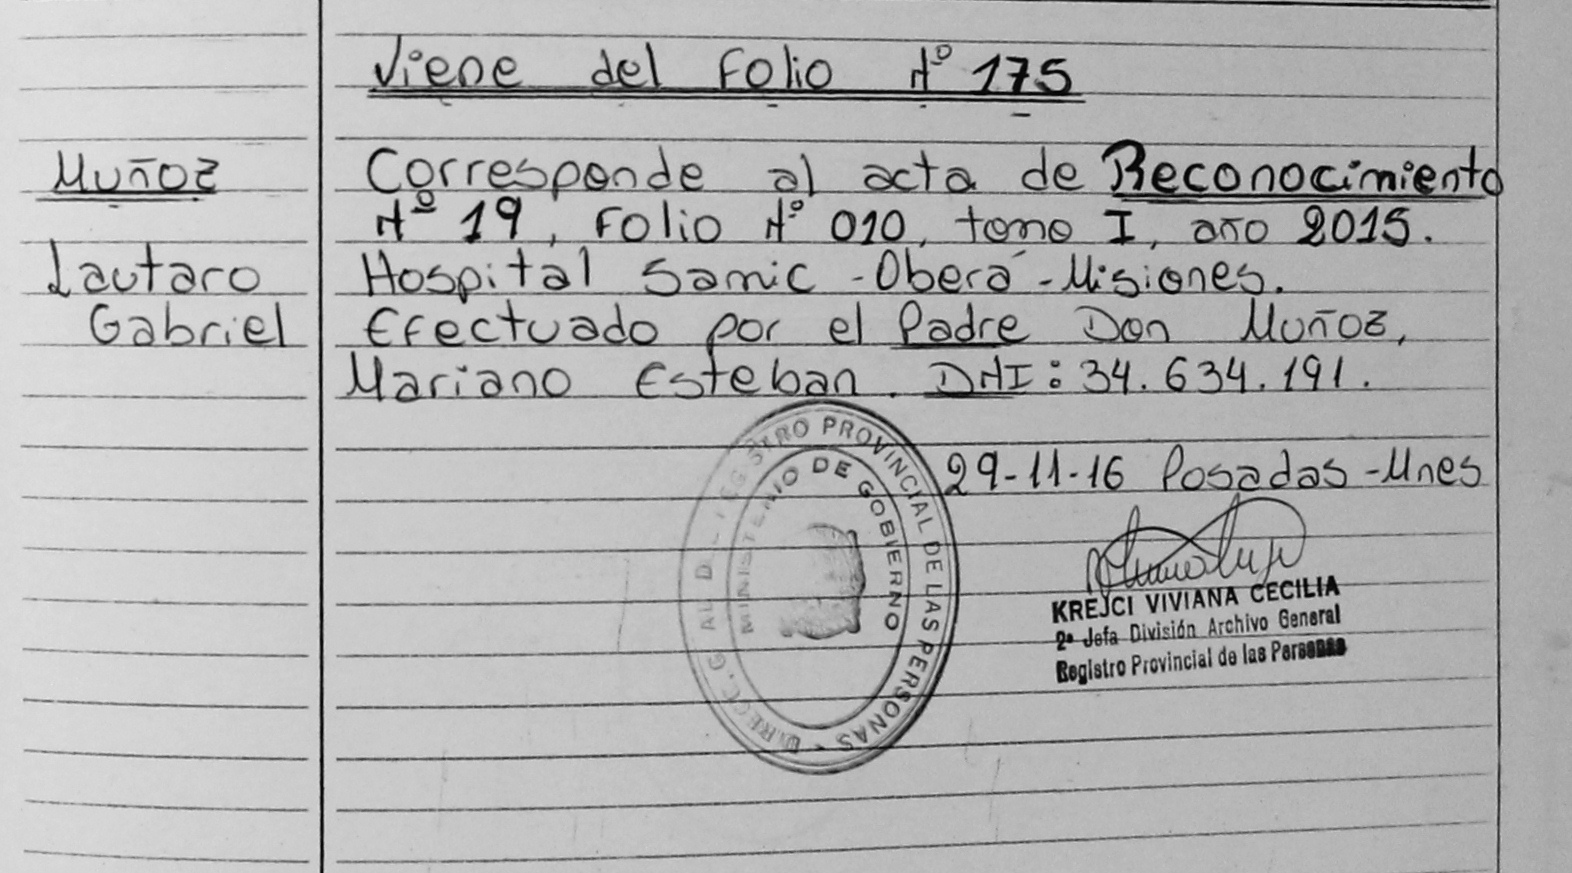 Viene del Folio Nº 175
Muñoz
Lautaro
Gabriel
Corresponde al acta de Reconocimiento
Nº 19, Folio Nº 010, tomo I, año 2015.
Hospital Samic - Oberá - Misiones.
Efectuado por el Padre Don Muñoz,
Mariano Esteban. DNI: 34.634.191.
29-11-16 Posadas - Mnes
REGISTRO PROVINCIAL DE LAS PERSONAS
MINISTERIO DE GOBIERNO
KREJCI VIVIANA CECILIA
2ª Jefa División Archivo General
Registro Provincial de las Personas